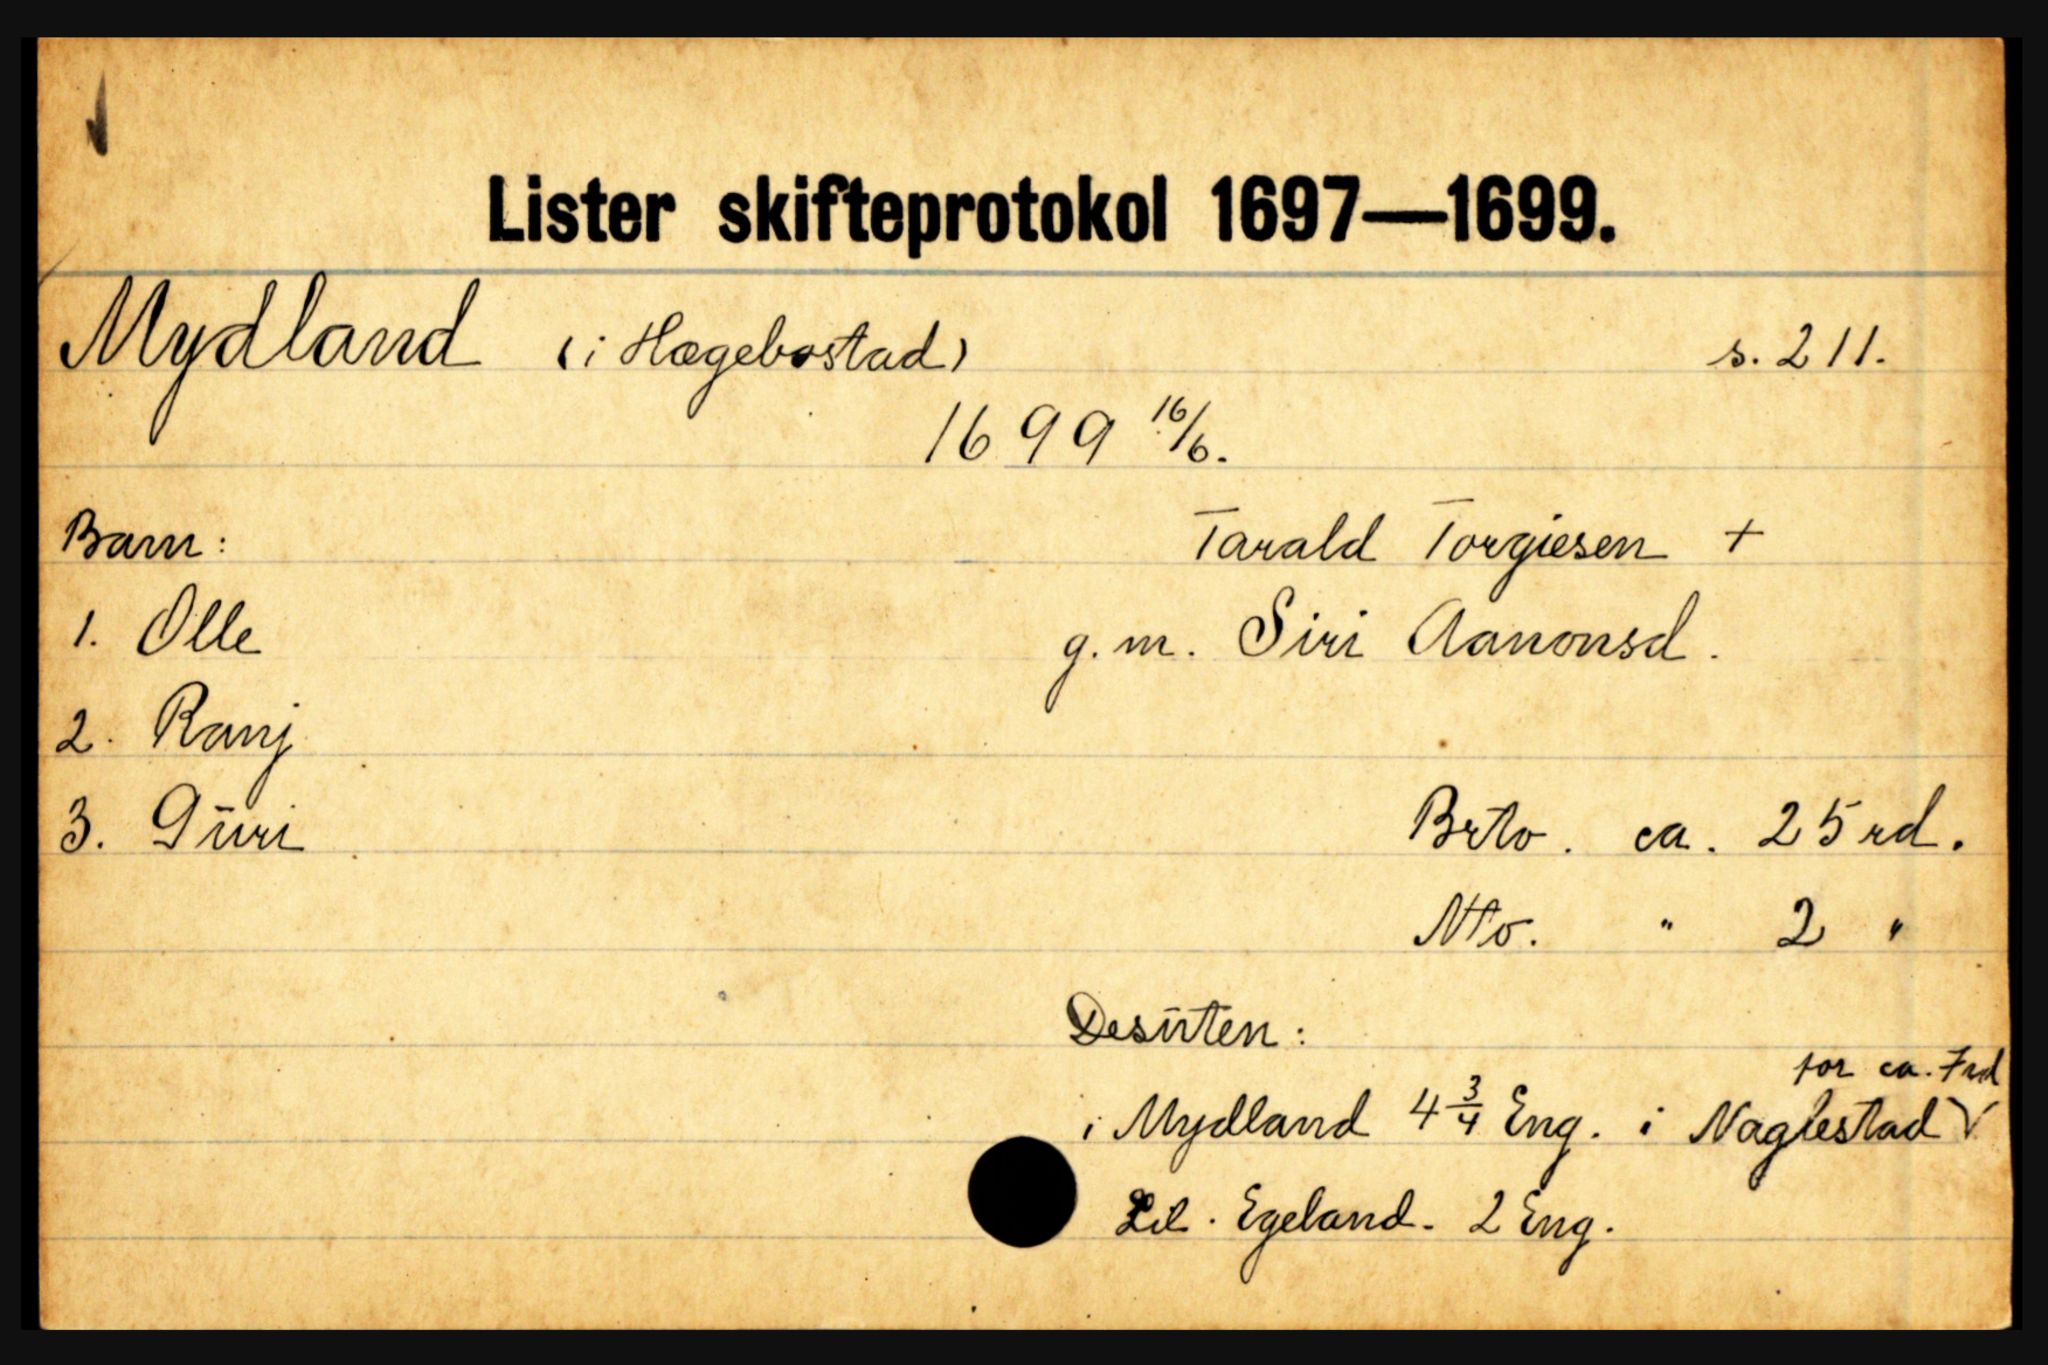 Lister skifteprotokol 1697—1699.
Mydland (i Hægebostad) s. 211.
1699 16/6.
Barn: Tarald Torgiesen +
1. Olle g. m. Siri Aanonsd.
2. Ranj
3. Gūri Brto. ca. 25 rd.
Nto. " 2 "
Desūten:
for ca. 7 rd
i Mydland 4 3/4 Eng. i Naglestad √
Lil. Egeland. 2 Eng.